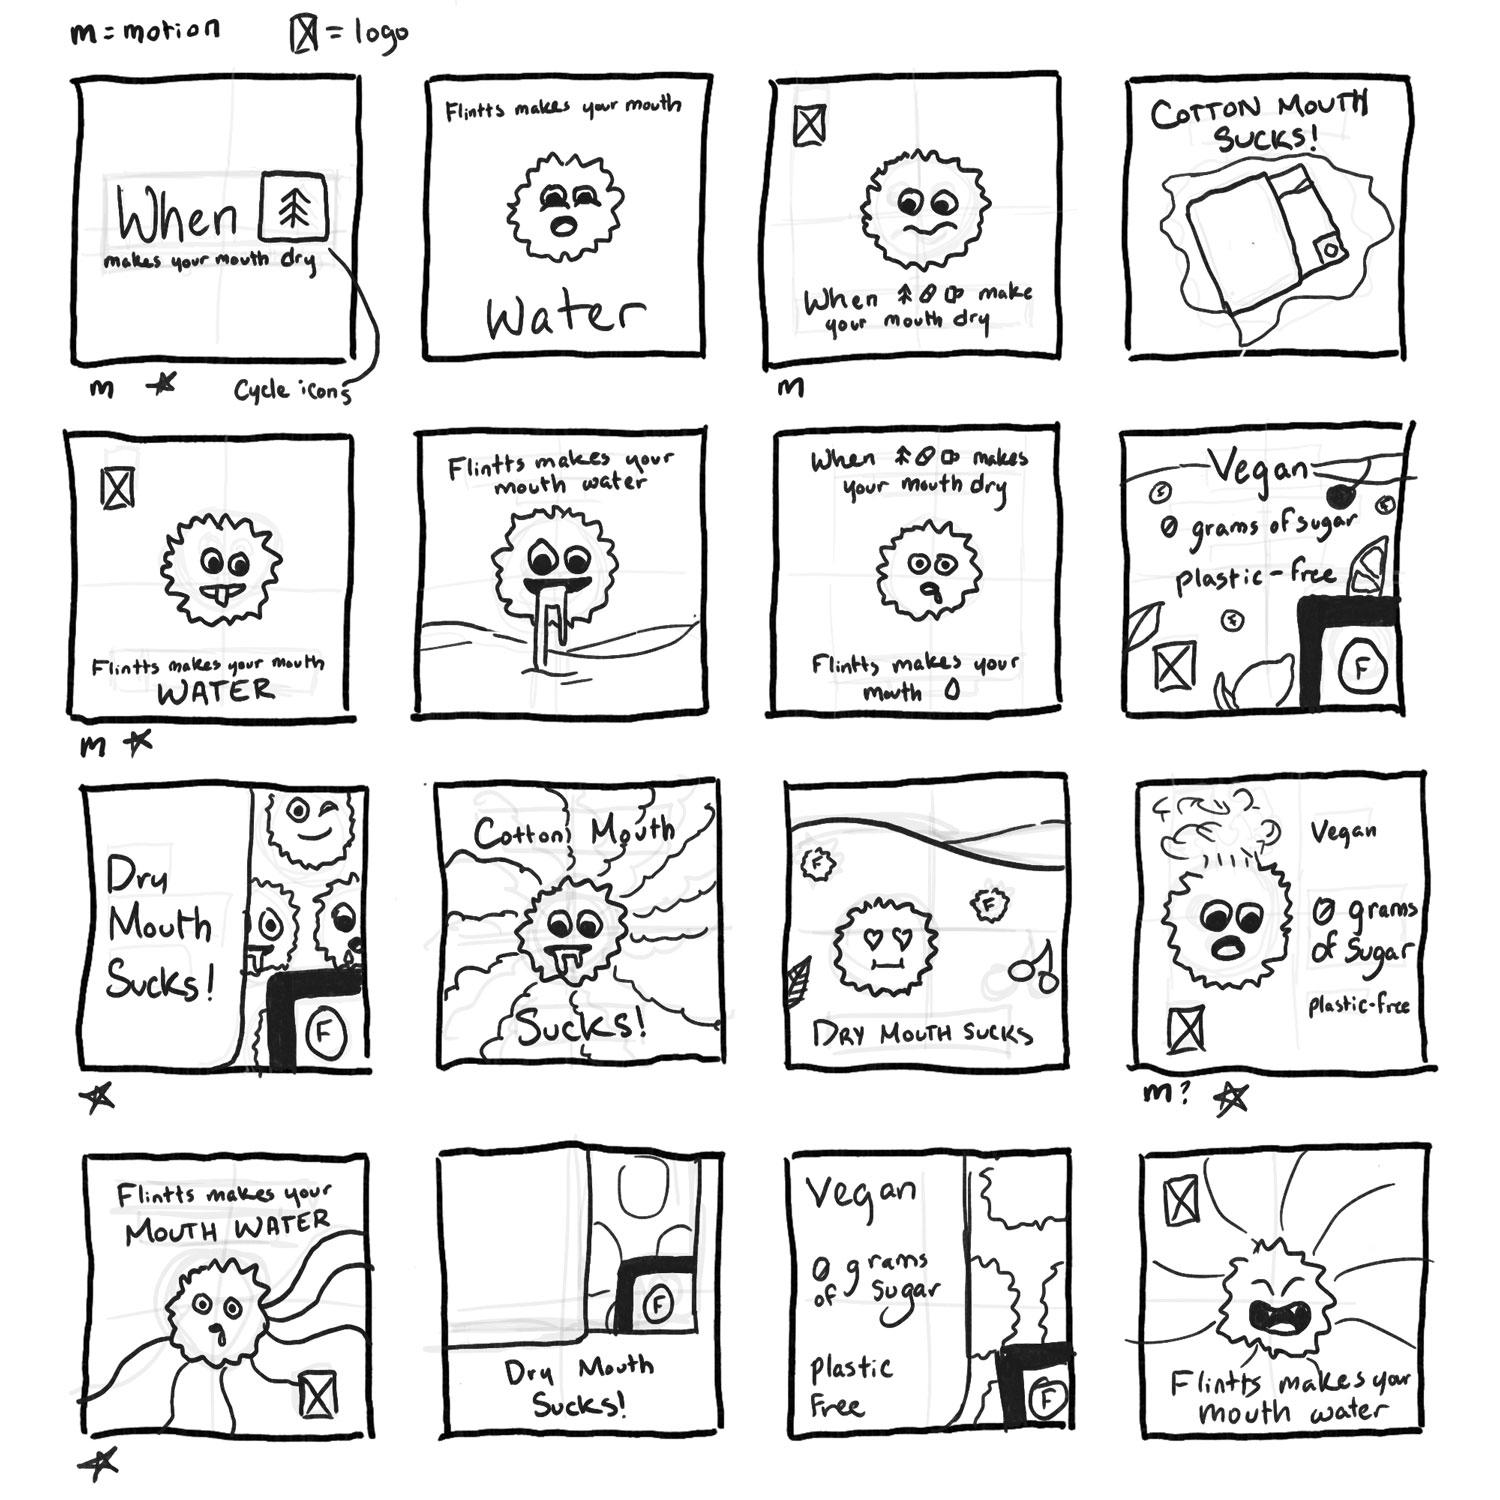 m = motion
= logo
When
makes your mouth dry
m
Cycle icons
Flintts makes your mouth
Water
When make
your mouth dry
m
COTTON MOUTH
SUCKS!
Flintts makes your mouth
WATER
m
Flintts makes your
mouth water
When makes
your mouth dry
Flintts makes your
mouth
Vegan
0 grams of sugar
plastic-free
F
Dry
Mouth
Sucks!
F
Cotton Mouth
Sucks!
F
F
DRY MOUTH SUCKS
Vegan
0 grams
of Sugar
plastic-free
m?
Flintts makes your
MOUTH WATER
F
Dry Mouth
Sucks!
Vegan
0 grams
of Sugar
plastic
Free
F
Flintts makes your
mouth water